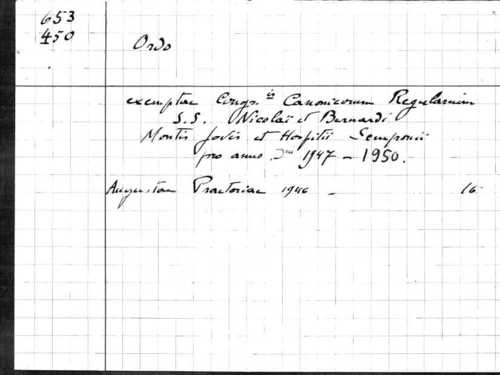 653
450
Ordo
exemptae Congr.is Canonicorum Regularium
S.S. Nicolai et Bernardi
Montis Jovis et Hospitii Semproni
pro anno Dni 1947 - 1950.
Augustae Praetoriae 1946 - 16